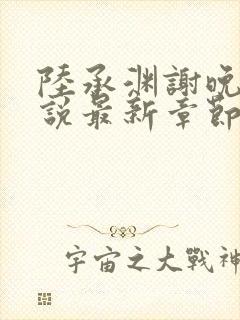 陸承渊謝晚
説最新章節
宇宙之大戰神